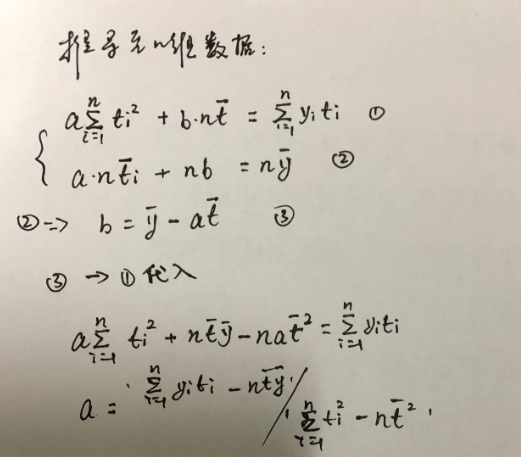 推导 n组数据:
a∑_{i=1}^{n} t_i² + b·n t̄ = ∑_{i=1}^{n} y_i t_i ①
a·n t̄_i + nb = nȳ ②
②=> b = ȳ - a t̄ ③
③ → ① 代入
a∑_{i=1}^{n} t_i² + n t̄ ȳ - na t̄² = ∑_{i=1}^{n} y_i t_i
a = ∑_{i=1}^{n} y_i t_i - n t̄ȳ / ∑_{i=1}^{n} t_i² - n t̄²